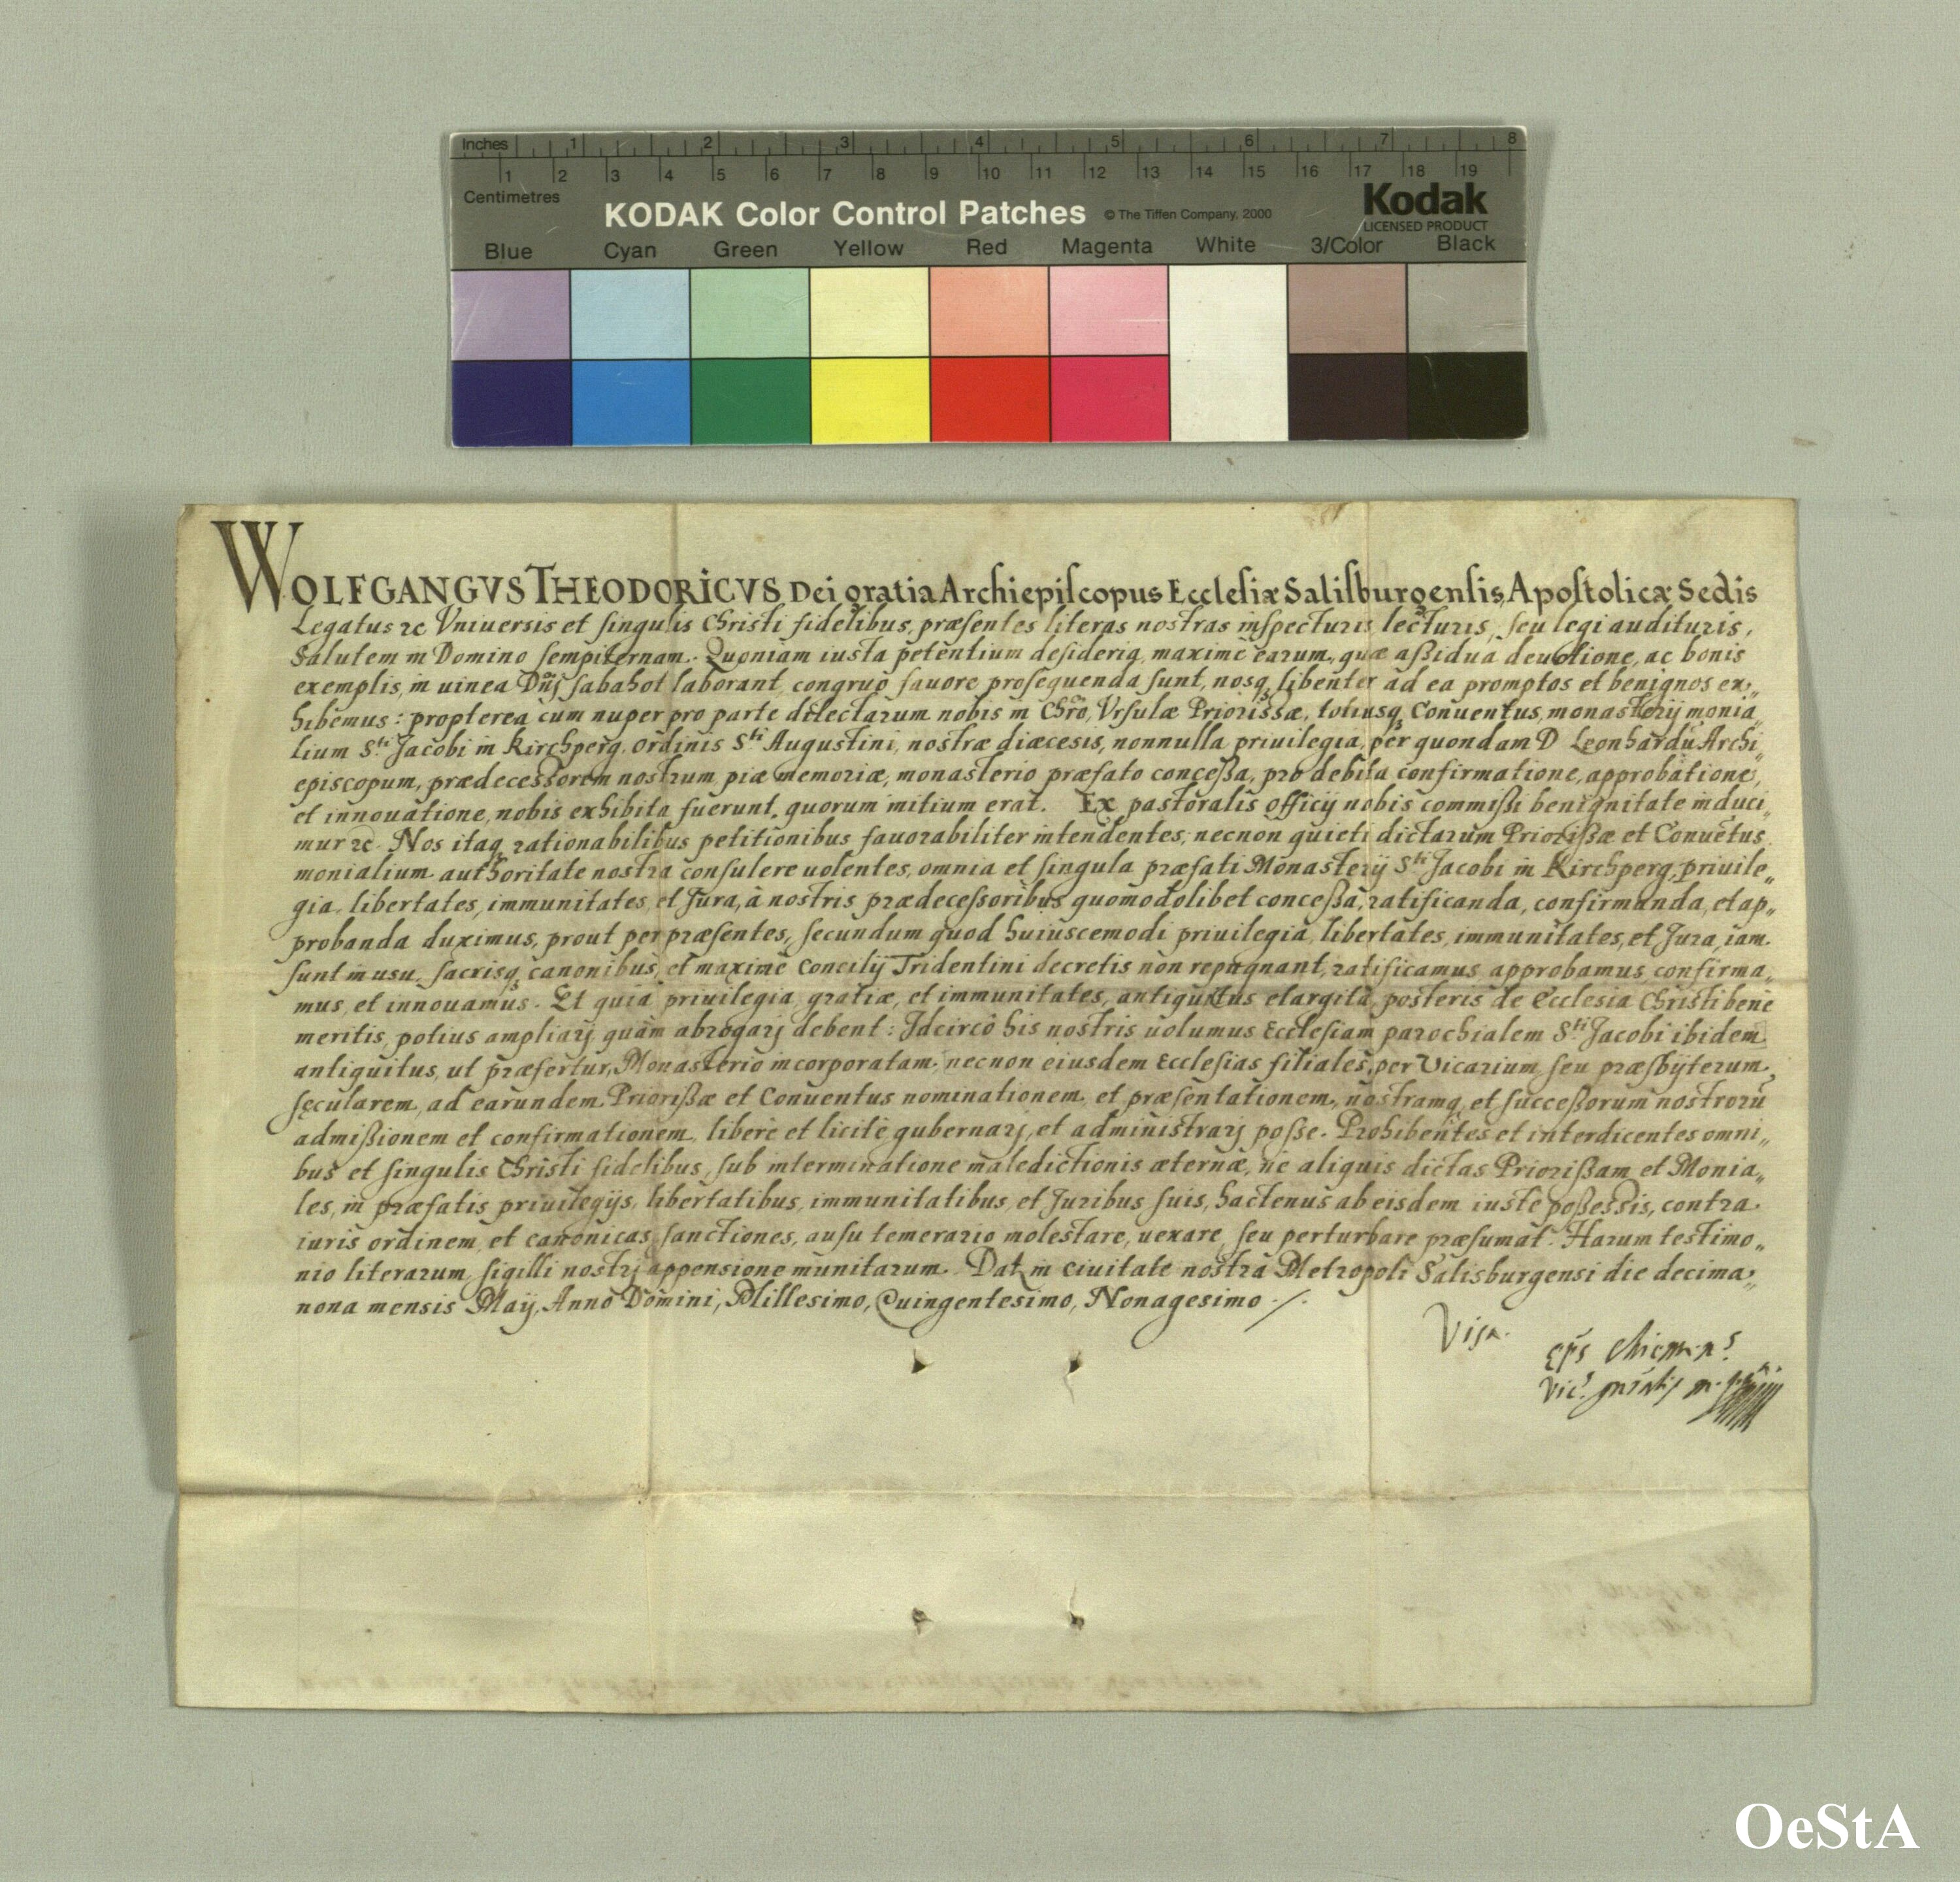 Inches 1 2 3 4 5 6 7 8
1 2 3 4 5 6 7 8 9 10 11 12 13 14 15 16 17 18 19
Centimetres
KODAK Color Control Patches © The Tiffen Company, 2000 Kodak
LICENSED PRODUCT
Blue Cyan Green Yellow Red Magenta White 3/Color Black
WOLFGANGVS THEODORICVS Dei gratia Archiepiſcopus Eccleſiæ Saliſburgenſis, Apoſtolicæ Sedis
Legatus ꝛc Vniuersis et ſingulis Chriſti fidelibus, præſentes literas nostras inſpecturis, lecturis, ſeu legi audituris,
Salutem in Domino ſempiternam. Quoniam iusta petentium deſideria, maximè earum, quæ aßidua deuotione, ac bonis
exemplis, in uinea Dn̄j ſabahot laborant, congruo fauore proſequenda ſunt, nosq; libenter ad ea promptos et benignos ex„
hibemus: propterea cum nuper pro parte dilectarum nobis in Chr̄o, Vrſulæ Priorissæ, totiusq; Conuentus, monasterij monia„
lium S.ti Jacobi in Kirchperg, ordinis S.ti Augustini, nostræ diæcesis, nonnulla priuilegia, per quondam D Leonhardū Archi„
episcopum, prædecessorem nostrum piæ memoriæ, monasterio præfato conceßa, pro debita confirmatione, approbatione,
et innouatione, nobis exhibita fuerunt, quorum initium erat. Ex pastoralis officij nobis commißi benignitate induci„
mur ꝛc. Nos itaq; rationabilibus petitionibus fauorabiliter intendentes, necnon quieti dictarum Priorißæ et Conuētus
monialium authoritate nostra consulere uolentes, omnia et ſingula præfati Monasterij S.ti Jacobi in Kirchperg, priuile„
gia, libertates, immunitates, et Jura, à nostris prædeceſsoribus quomodolibet conceßa, ratificanda, confirmanda, et ap„
probanda duximus, prout per præſentes, ſecundum quod huiuscemodi priuilegia, libertates, immunitates, et Jura, iam
ſunt in usu, ſacrisq; canonibus, et maximè Concilij Tridentini decretis non repugnant, ratificamus approbamus, confirma„
mus, et innouamus. Et quia priuilegia, gratiæ, et immunitates, antiquitus elargita, posteris de Ecclesia Christi bene
meritis, potius ampliarj quàm abrogarj debent: Idcircò his nostris uolumus Eccleſiam parochialem S.ti Jacobi ibidem
antiquitus, ut præfertur, Monasterio incorporatam, necnon eiusdem Eccleſias filiales, per Vicarium ſeu præſbÿterum
ſęcularem, ad earundem Priorißæ et Conuentus nominationem, et præſentationem, nostramq; et ſucceßorum nostrorū
admißionem et confirmationem, liberè et licitè gubernarj, et administrarj poſſe. Prohibentes et interdicentes omni„
bus et ſingulis Christi fidelibus, ſub interminatione maledictionis æternæ, ne aliquis dictas Priorißam, et Monia„
les, in præfatis priuilegijs, libertatibus, immunitatibus, et Juribus ſuis, hactenus ab eisdem iustè poßessis, contra
iuris ordinem, et canonicas ſanctiones, auſu temerario molestare, uexare, ſeu perturbare præſumat. Harum testimo„
nio literarum, ſigilli nostrj appensione munitarum. Dat in ciuitate nostra Metropoli Salisburgensi die decima„
nona mensis Maij, Anno Domini, Millesimo, Quingentesimo, Nonagesimo ./.
Visa.
Ep̄s Chiemen.s
OeStA